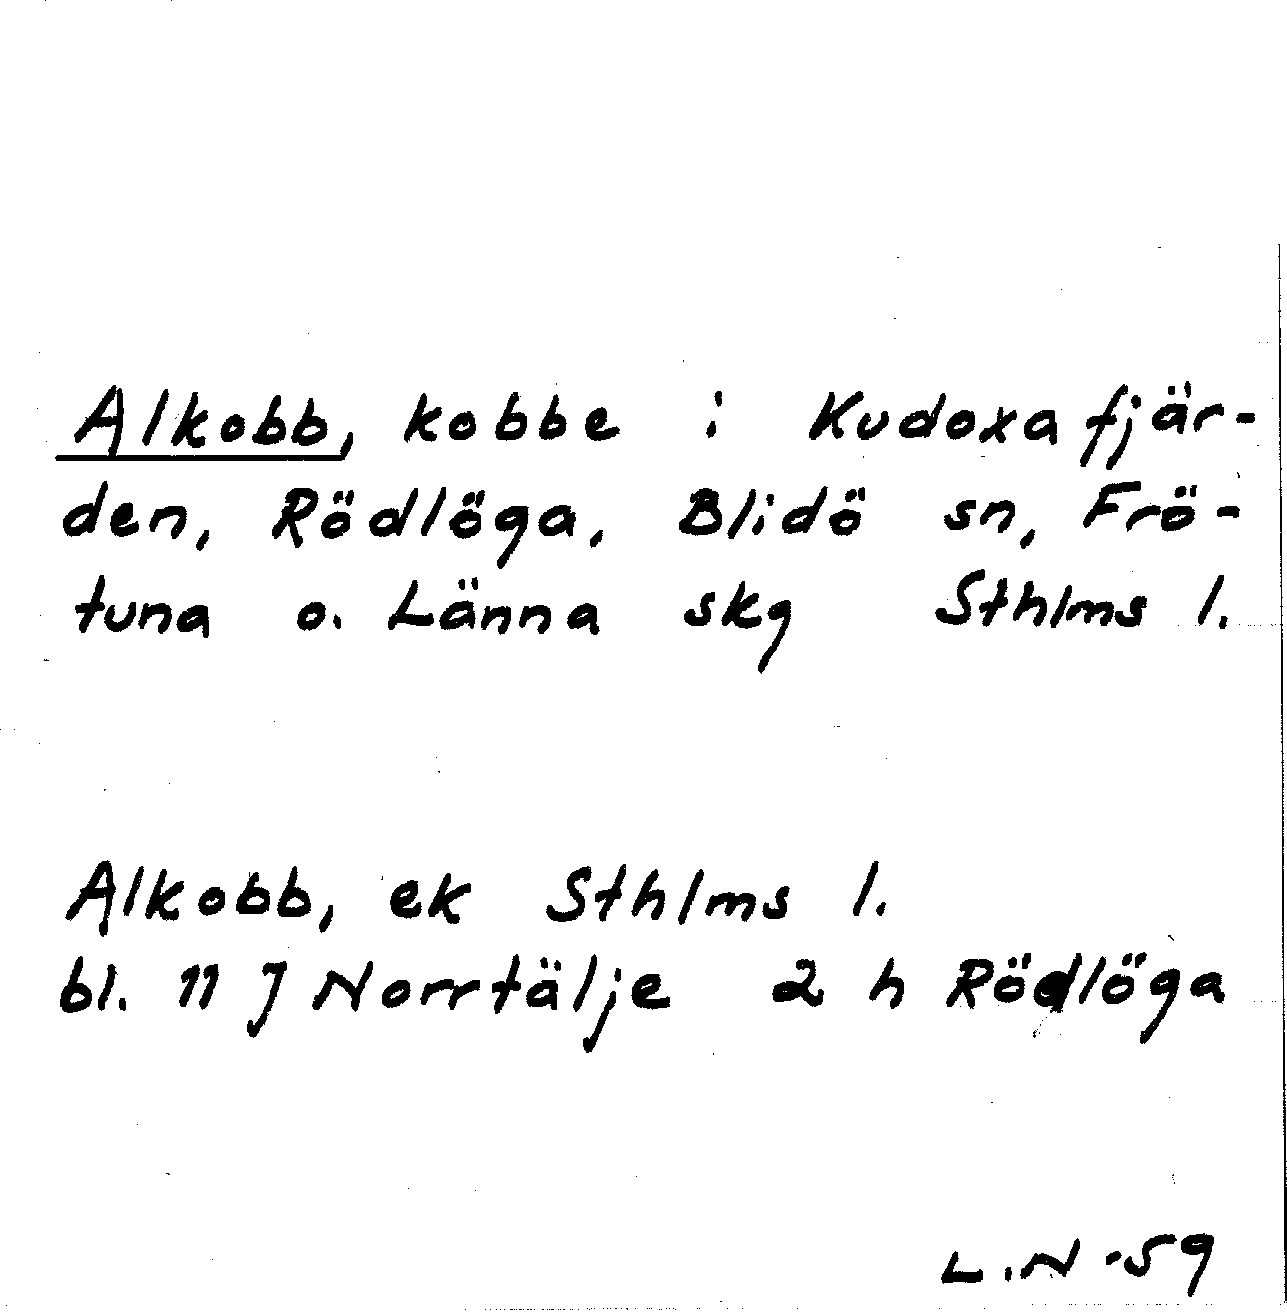 Alkobb, kobbe i Kudoxafjär-
den, Rödlöga, Blidö sn, Frö-
tuna o. Länna skg Sthlms l.
Alkobb, ek Sthlms l.
bl. 11 J Norrtälje 2 h Rödlöga
L.N -59